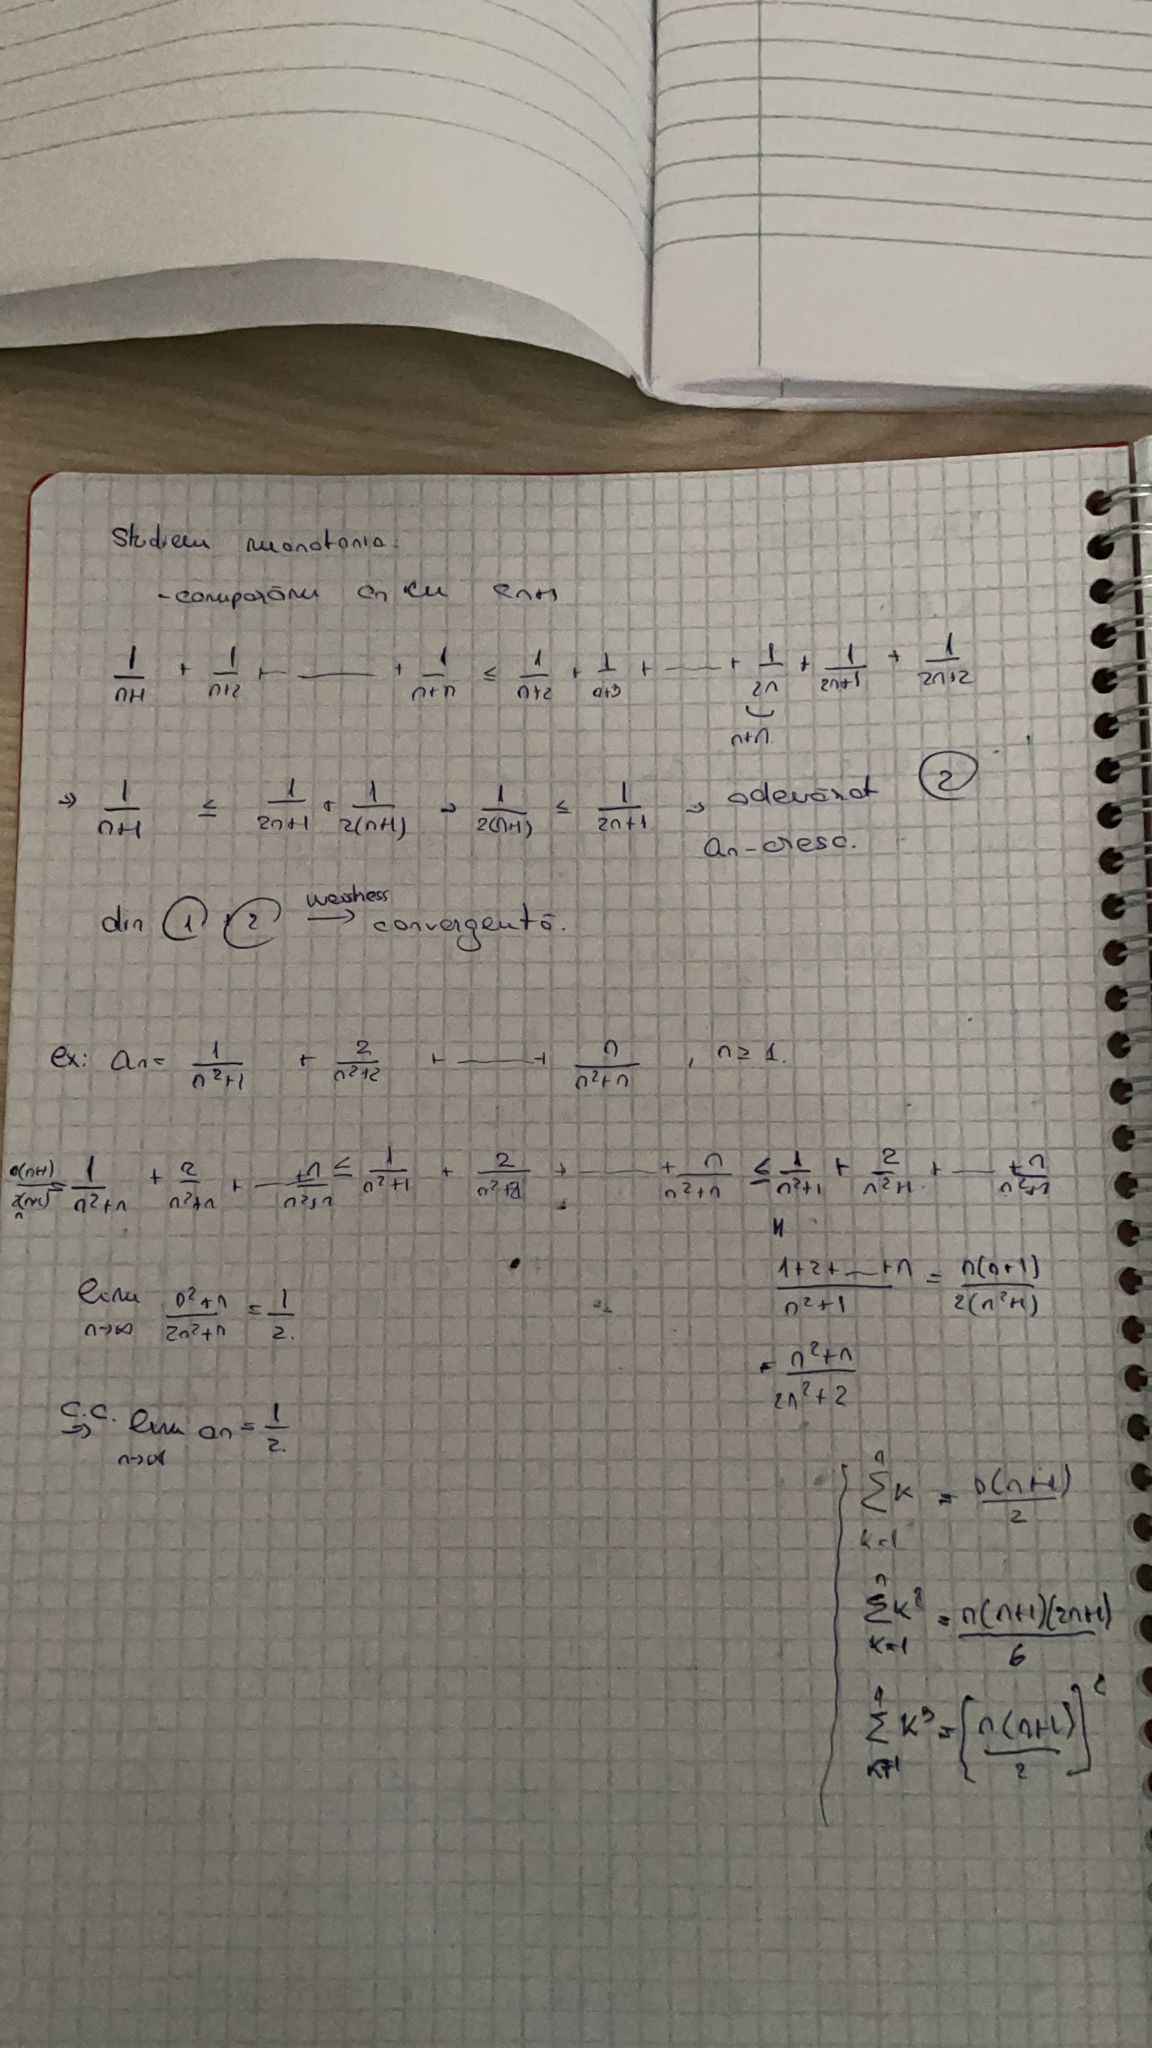 Studiem monotonia:
- comparăm an cu an+1
1/(n+1) + 1/(n+2) + ... + 1/(n+n) ≤ 1/(n+2) + 1/(n+3) + ... + 1/2n + 1/(2n+1) + 1/(2n+2)
n+n
⇒ 1/(n+1) ≤ 1/(2n+1) + 1/2(n+1) ⇒ 1/2(n+1) ≤ 1/(2n+1) ⇒ adevărat (2)
an-cresc.
din (1) + (2) → convergentă.
ex: an = 1/(n²+1) + 2/(n²+2) + ... + n/(n²+n) , n ≥ 1.
= 1/(n²+n) + 2/(n²+n) + ... + n/(n²+n) ≤ 1/(n²+1) + 2/(n²+2) + ... + n/(n²+n) ≤ 1/(n²+1) + 2/(n²+1) + ... + n/
(1+2+...+n)/(n²+1) = n(n+1)/2(n²+1)
lim n→∞ (n²+n)/(2n²+n) = 1/2.
= (n²+n)/(2n²+2)
C.C. ⇒ lim n→∞ an = 1/2.
∑ k=1 n k = n(n+1)/2
∑ k=1 n k² = n(n+1)(2n+1)/6
∑ k³ = [n(n+1)/2]²